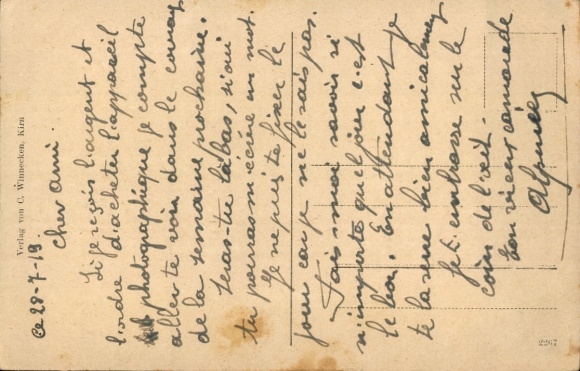 Ce 28-7-19.
Cher ami.
Si je reçois l'argent et
l'ordre d'acheter l'appareil
photographique je compte
aller te voir dans le courant
de la semaine prochaine.
Seras-tu là bas, si oui
tu pourras m'écrire un mot.
Je ne puis te fixer le
jour car je ne le sais pas.
Fais moi savoir si
n'importe quel jour c'est
le bon. En attendant je
te la serre bien amicalement
et t'embrasse sur le
coin de l'œil.
ton vieux camarade
Verlag von C. Winnecken, Kirn
2267